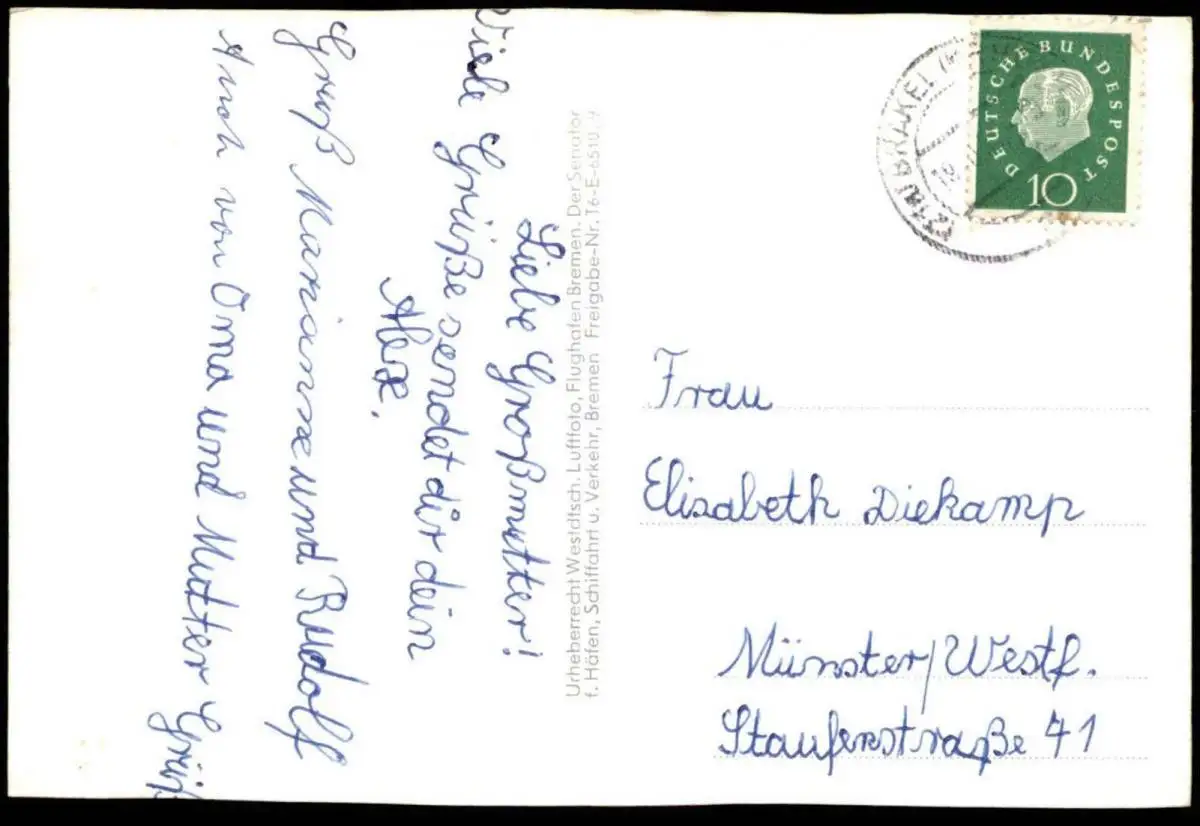 Liebe Großmutter!
Viele Grüße sendet dir dein
Alex.
Gruß Marianne und Rudolf
Auch von Oma und Mutter Grüß
Urheberrecht Westdtsch. Luftfoto, Flughafen Bremen. Der Senator
f. Häfen, Schiffahrt u. Verkehr, Bremen Freigabe-Nr. T6-E-6510
BRAKEL
DEUTSCHE BUNDESPOST
10
Frau
Elisabeth Diekamp
Münster/Westf.
Staufenstraße 41